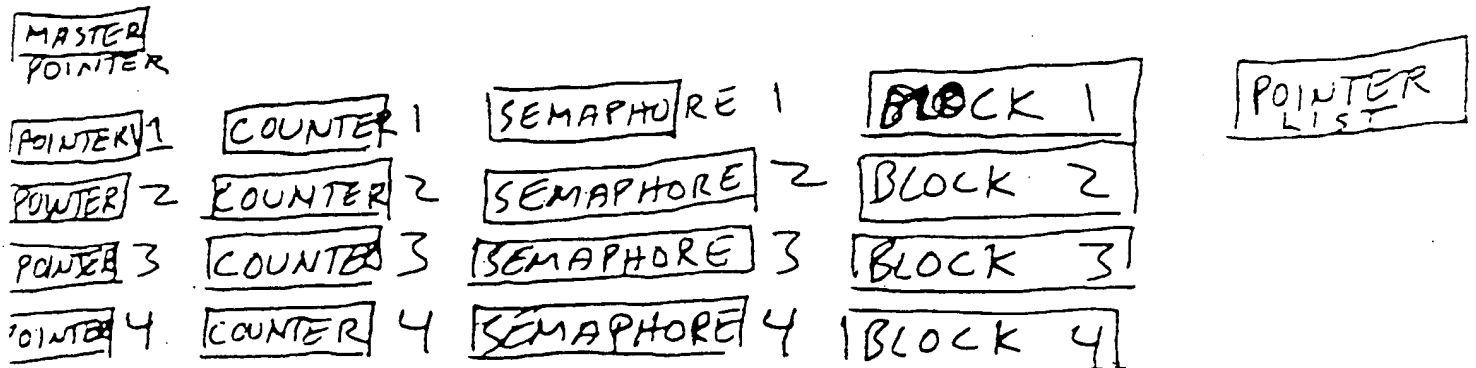 MASTER
POINTER
POINTER 1 COUNTER 1 SEMAPHORE 1 BLOCK 1 POINTER
LIST
POINTER 2 COUNTER 2 SEMAPHORE 2 BLOCK 2
POINTER 3 COUNTER 3 SEMAPHORE 3 BLOCK 3
POINTER 4 COUNTER 4 SEMAPHORE 4 BLOCK 4